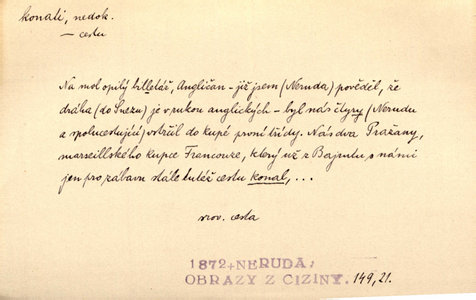 konati, nedok.
— cestu
Na mol opilý billetář, Angličan - již jsem (Neruda) pověděl, že
dráha (do Suezu) je v rukou anglických - byl nás čtyry (Nerudu
a spolucestující) vstrčil do kupé první třídy. Nás dva Pražany,
marseillského kupce Francouze, který už z Bajrutu s námi
jen pro zábavu stále tutéž cestu konal, ...
srov. cesta
1872+NERUDA,
OBRAZY Z CIZINY. 149,21.